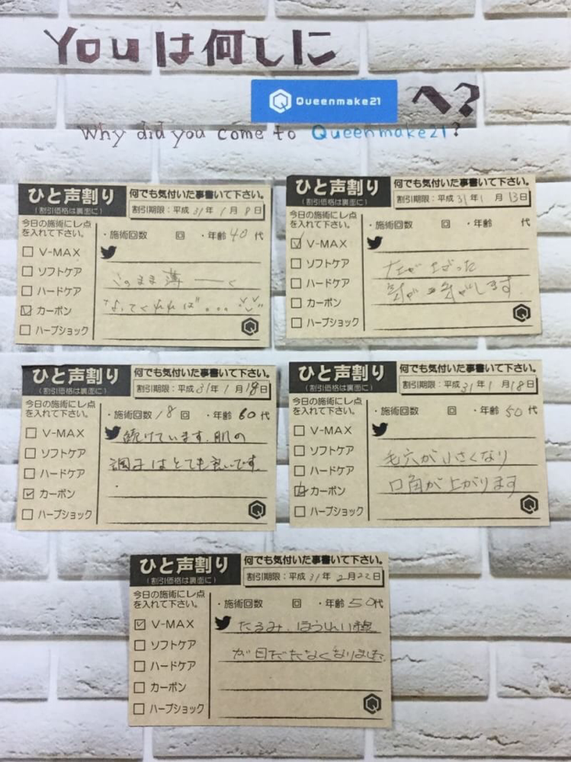 Youは何しに
Queenmake21 へ?
Why did you come to Queenmake21?
ひと声割り
(割引価格は裏面に)
何でも気付いた事書いて下さい。
割引期限：平成 31年 1月 8日
今日の施術にレ点
を入れて下さい。
・施術回数 回 ・年齢 40 代
V-MAX
ソフトケア
ハードケア
カーボン
ハーブショック
このまま薄ーく
なってくれれば"...
ひと声割り
(割引価格は裏面に)
何でも気付いた事書いて下さい。
割引期限：平成 31年 1月 13日
今日の施術にレ点
を入れて下さい。
・施術回数 回 ・年齢 代
V-MAX
ソフトケア
ハードケア
カーボン
ハーブショック
上がった
します
ひと声割り
(割引価格は裏面に)
何でも気付いた事書いて下さい。
割引期限：平成 31年 1月 19日
今日の施術にレ点
を入れて下さい。
・施術回数 18 回 ・年齢 60 代
V-MAX
ソフトケア
ハードケア
カーボン
ハーブショック
続けています。肌の
調子はとても良いです
ひと声割り
(割引価格は裏面に)
何でも気付いた事書いて下さい。
割引期限：平成 31年 1月 18日
今日の施術にレ点
を入れて下さい。
・施術回数 回 ・年齢 50 代
V-MAX
ソフトケア
ハードケア
カーボン
ハーブショック
毛穴が小さくなり
口角が上がります
ひと声割り
(割引価格は裏面に)
何でも気付いた事書いて下さい。
割引期限：平成 31年 2月22日
今日の施術にレ点
を入れて下さい。
・施術回数 回 ・年齢 50代
V-MAX
ソフトケア
ハードケア
カーボン
ハーブショック
たるみ、ほうれい線
が目だたなくなりました